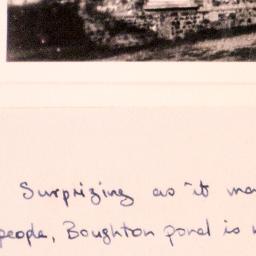 Surprizing as it ma
people, Boughton pond is